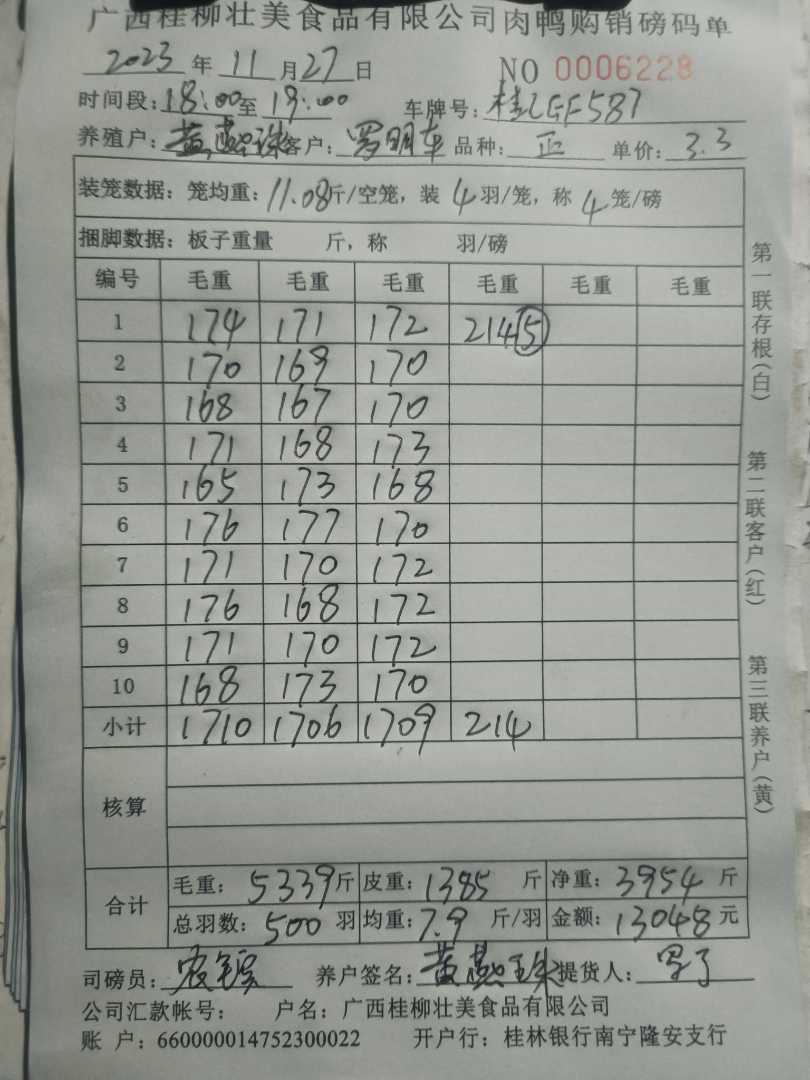 广西桂柳壮美食品有限公司肉鸭购销磅码单
2023 年 11 月 27 日 NO 0006228
时间段：18:00 至 19:00 车牌号：桂LGF587
养殖户：黄燕珠 客户：罗明车 品种：正 单价：3.3
装笼数据：笼均重：11.08斤/空笼，装 4 羽/笼，称 4 笼/磅
捆脚数据：板子重量 斤，称 羽/磅
编号 毛重 毛重 毛重 毛重 毛重 毛重
1 174 171 172 214⑤
2 170 169 170
3 168 167 170
4 171 168 173
5 165 173 168
6 176 177 170
7 171 170 172
8 176 168 172
9 171 170 172
10 168 173 170
小计 1710 1706 1709 214
核算
合计 毛重：5339斤 皮重：1385 斤 净重：3954 斤
总羽数：500 羽 均重：7.9 斤/羽 金额：13048 元
司磅员： 养户签名：黄燕珠 提货人：
公司汇款帐号： 户名：广西桂柳壮美食品有限公司
账 户：660000014752300022 开户行：桂林银行南宁隆安支行
第一联存根（白）
第二联客户（红）
第三联养户（黄）